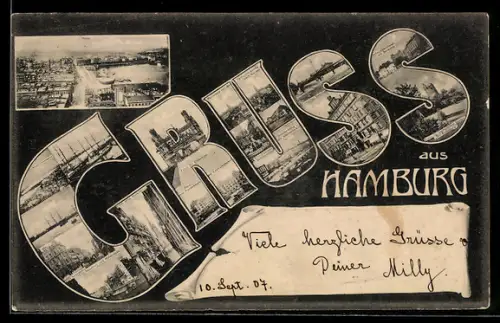 GRUSS
aus
HAMBURG
Viele herzliche Grüsse v
Deiner Milly.
10. Sept. 07.